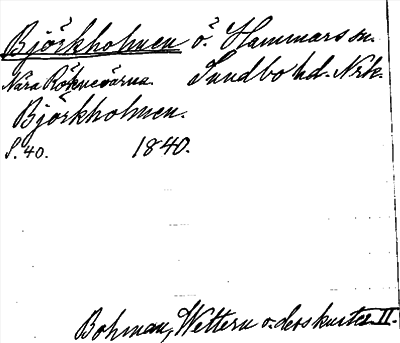 Björkholmen ö. Hammars sn.
Nära Rökneöarna. Sundbo hd. Nrk.
Björkholmen.
S. 40. 1840.
Bohman, Wettern o. dess kuster II.